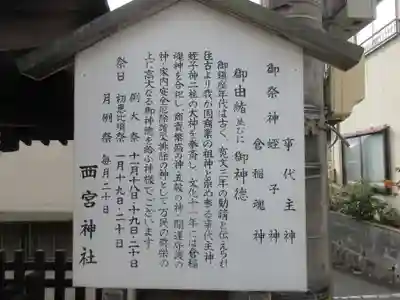 御祭神 事代主神
蛭子神
倉稲魂神
御由緒並むに御神徳
御鎮座年代は古く、寛文三年の勧請と伝えられ
往古より我が国商業の祖神と崇め奉る事代主神
蛭子神二社の大神を奉斎し、文化十一年には倉稲
魂神を合祀し、商売繁盛の神・五穀の神・開運守護の
神・家内安全厄除災難排除の神として万民の崇敬の
上に高大なる御神徳を給ふ神様でございます
祭日 例大祭 十一月十八日・十九日・二十日
初恵比須祭 一月十九日・二十日
月例祭 毎月二十日
西宮神社